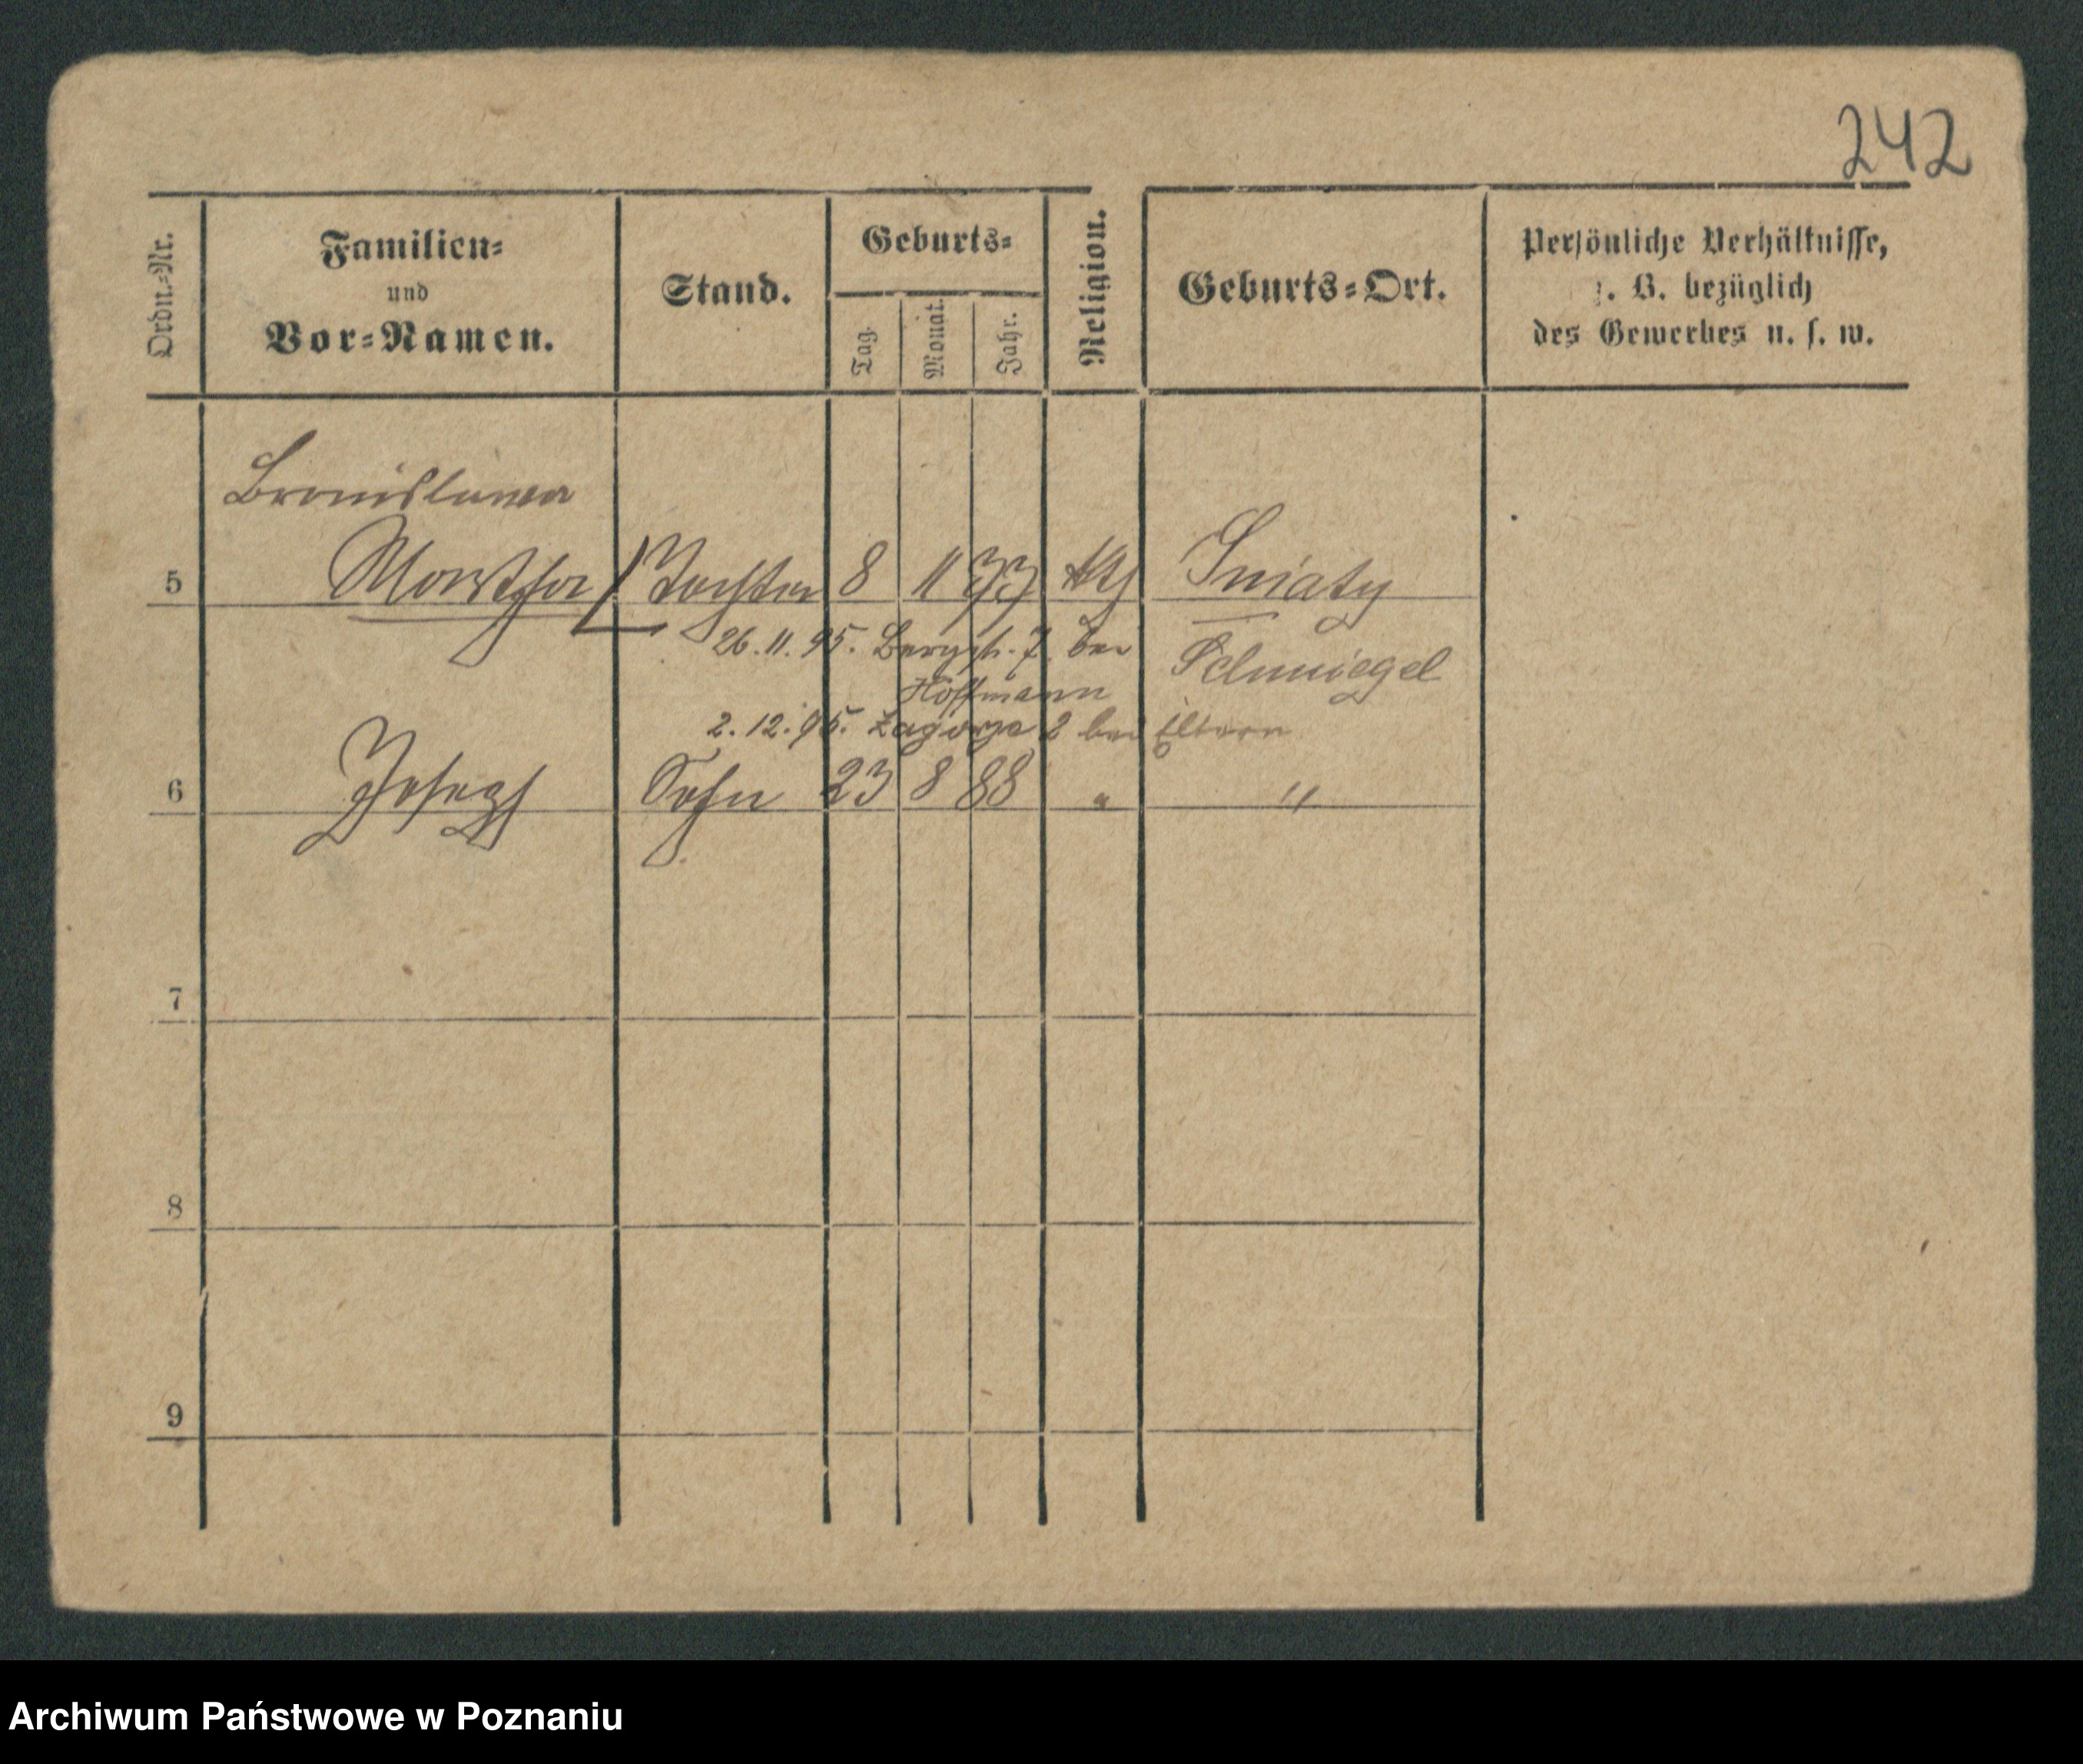 242
Ordn.-Nr.
Familien-
und
Vor-Namen.
Stand.
Geburts-
Tag.
Monat.
Jahr.
Religion.
Geburts-Ort.
Persönliche Verhältnisse,
z. B. bezüglich
des Gewerbes u. s. w.
Bronislawa
5 Martha Tochter 8 11 73 kth Sniaty
26.11.95. Bergstr. 7. bei Schmiegel
Hoffmann
2.12.95. Zagorze 2 bei Eltern
6 Joseph Sohn 23 8 88 " "
7
8
9
Archiwum Państwowe w Poznaniu